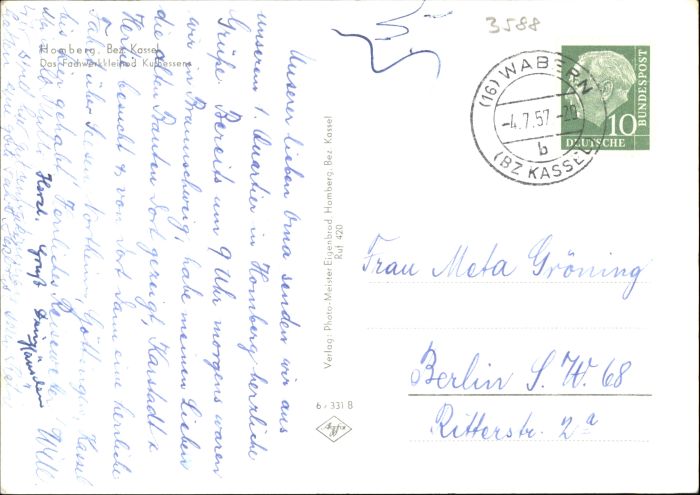 3588
Homberg, Bez. Kassel
Das Fachwerkkleinod Kurhessens
Unserer lieben Oma senden wir aus
unserem 1. Quartier in Homberg herzliche
Grüße. Bereits um 9 Uhr morgens waren
wir in Braunschweig, habe meinen Lieben
die alten Bauten dort gezeigt, Karstadt
besucht & von dort dann eine herrliche
Fahrt über Seesen, Northeim, Göttingen, Kassel
bis hier gehabt. Herrliches Reisewetter
Herzl. Gruß
Verlag: Photo-Meister Eigenbrod, Homberg, Bez. Kassel
Ruf 420
6/331 B
Agfa
(16) WABERN
-4.7.57.-20
b
(BZ KASSEL)
10
DEUTSCHE
BUNDESPOST
Frau Meta Gröning
Berlin S.W. 68
Ritterstr. 2a